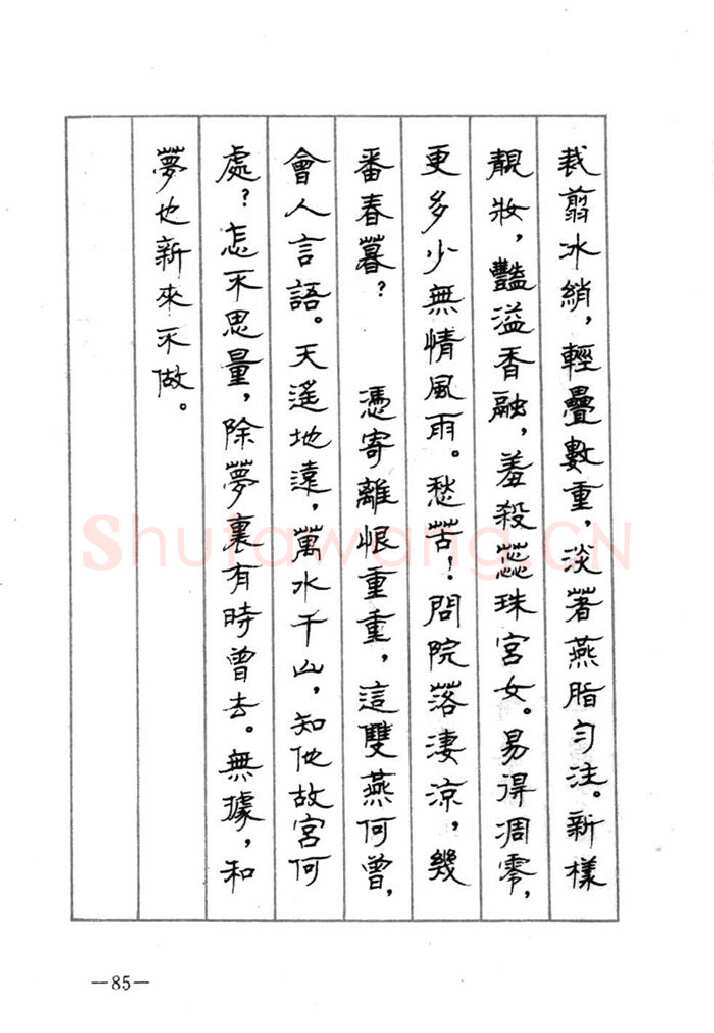 裁翦冰綃，輕疊數重，淡著燕脂匀注。新樣
靚妝，豔溢香融，羞殺蕊珠宮女。易得凋零，
更多少無情風雨。愁苦！問院落淒涼，幾
番春暮？　憑寄離恨重重，這雙燕何曾，
會人言語。天遙地遠，萬水千山，知他故宮何
處？怎不思量，除夢裏有時曾去。無據，和
夢也新來不做。
Shufawang.CN
—85—